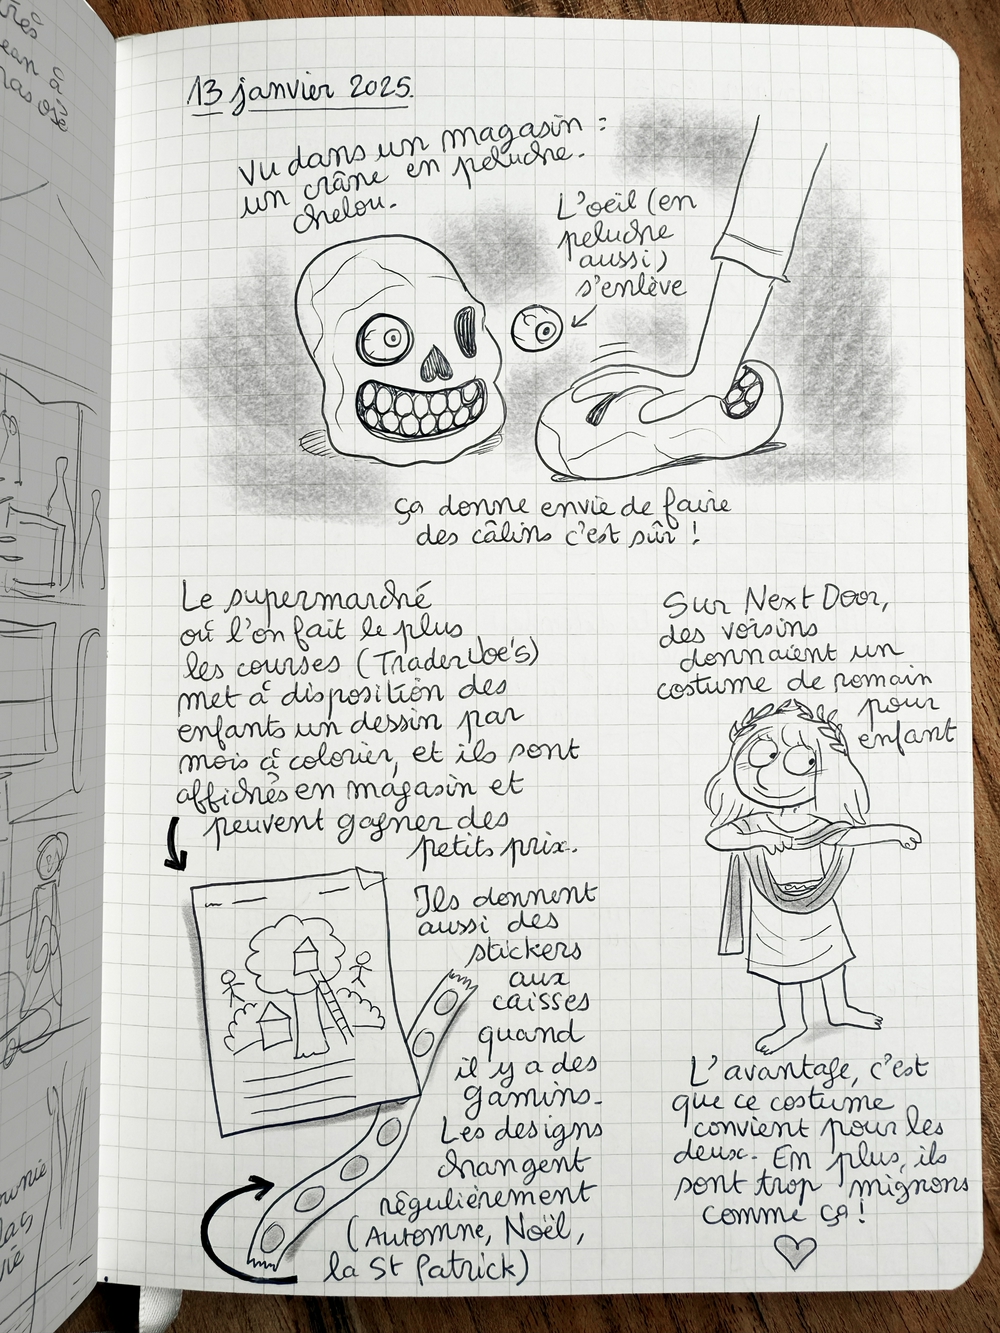 13 janvier 2025.
vu dans un magasin :
un crâne en peluche.
chelou.
L'oeil (en
peluche
aussi)
s'enlève
ça donne envie de faire
des câlins c'est sûr !
Le supermarché
où l'on fait le plus
les courses (Trader Joe's)
met à disposition des
enfants un dessin par
mois à colorier, et ils sont
affichés en magasin et
peuvent gagner des
petits prix.
Ils donnent
aussi des
stickers
aux
caisses
quand
il y a des
gamins.
Les designs
changent
régulièrement
(Automne, Noël,
la St Patrick)
Sur Next Door,
des voisins
donnaient un
costume de romain
pour
enfant
L'avantage, c'est
que ce costume
convient pour les
deux. En plus, ils
sont trop mignons
comme ça !